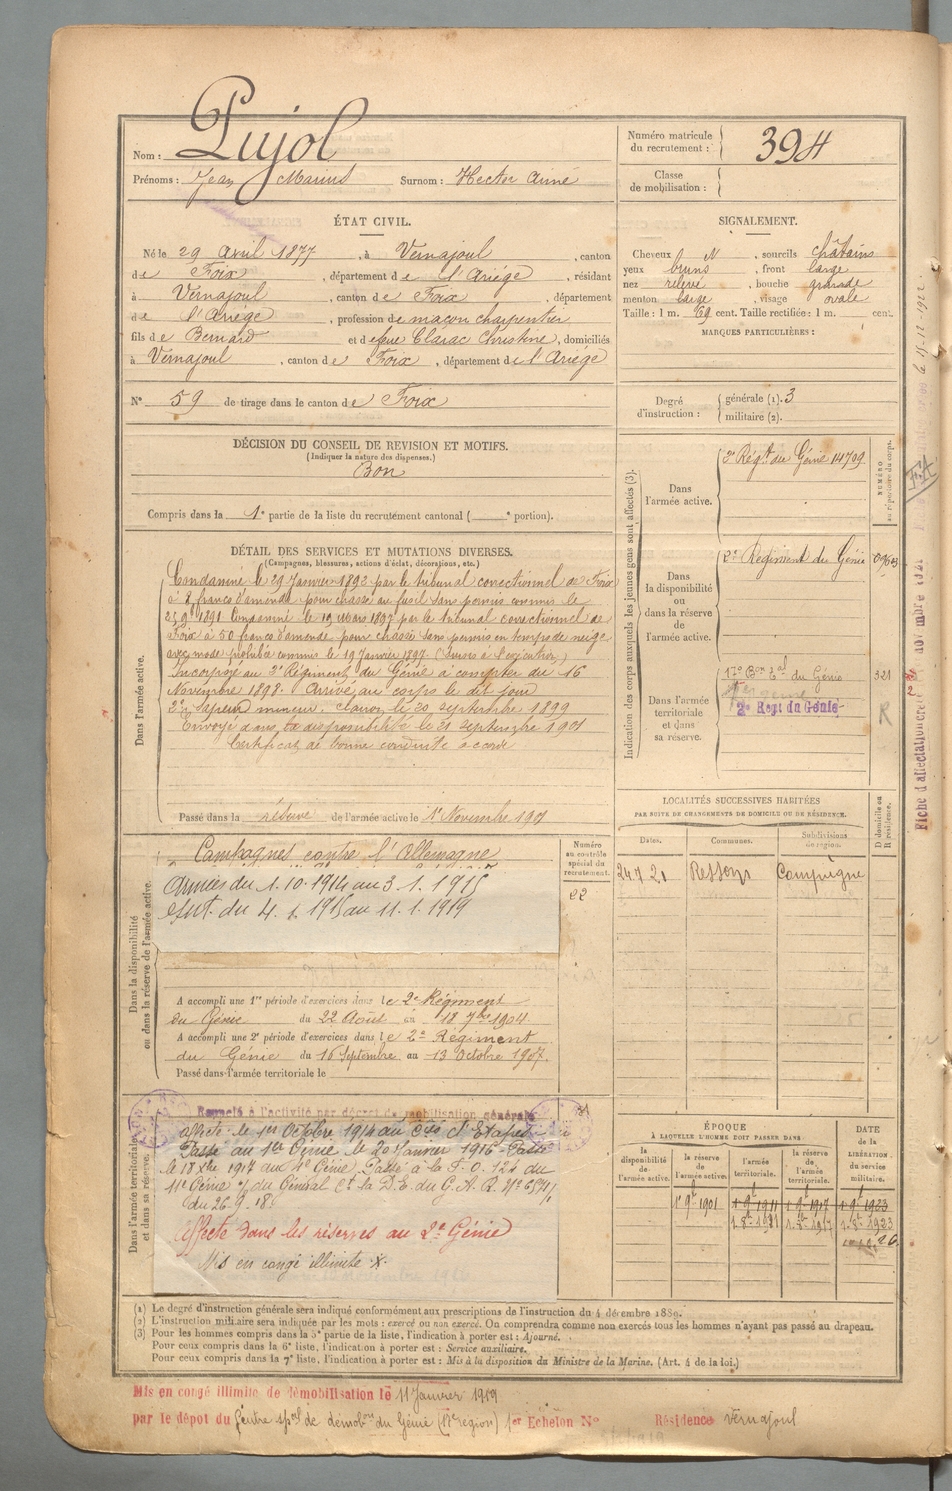 Nom : Pujol
Prénoms : Jean Marius Surnom : Hector Anné
Numéro matricule du recrutement : 394
Classe de mobilisation :
ÉTAT CIVIL.
Né le 29 avril 1877, à Vernajoul, canton
de Foix, département de l'Ariège, résidant
à Vernajoul, canton de Foix, département
de l'Ariège, profession de maçon charpentier
fils de Bernard et de feue Clarac Christine, domiciliés
à Vernajoul, canton de Foix, département de l'Ariège
SIGNALEMENT.
Cheveux N, sourcils châtains
yeux bruns, front large
nez relevé, bouche grande
menton large, visage ovale
Taille : 1 m. 69 cent. Taille rectifiée : 1 m. cent.
MARQUES PARTICULIÈRES :
N° 59 de tirage dans le canton de Foix
Degré d'instruction : générale (1). 3
militaire (2).
DÉCISION DU CONSEIL DE REVISION ET MOTIFS.
(Indiquer la nature des dispenses.)
Bon
Compris dans la 1e partie de la liste du recrutement cantonal ( e portion).
DÉTAIL DES SERVICES ET MUTATIONS DIVERSES.
(Campagnes, blessures, actions d'éclat, décorations, etc.)
Dans l'armée active.
Condamné le 29 Janvier 1892 par le tribunal correctionnel de Foix
à francs d'amende pour chasse au fusil sans permis commis le
1891. Condamné le 19 Mars 1897 par le tribunal correctionnel de
Foix à 50 francs d'amende pour chasse sans permis en temps de neige
avec mode prohibée commis le 19 Janvier 1897. (Sursis à l'exécution)
Incorporé au 3e Régiment du Génie à compter du 16
Novembre 1898. Arrivé au corps le dit jour
2e Sapeur mineur. Clairon le 20 septembre 1899
Envoyé dans la disponibilité le 21 septembre 1901
Certificat de bonne conduite accordé
Passé dans la réserve de l'armée active le 1er Novembre 1901
Indication des corps auxquels les jeunes gens sont affectés (3).
NUMÉRO au répertoire du corps.
Dans l'armée active.
3e Régt du Génie 14799
Dans la disponibilité ou dans la réserve de l'armée active.
2e Régiment du Génie
Dans l'armée territoriale et dans sa réserve.
17e Bon Eal du Génie 321
2e Regt du Génie
R
LOCALITÉS SUCCESSIVES HABITÉES
PAR SUITE DE CHANGEMENTS DE DOMICILE OU DE RÉSIDENCE.
Dates. Communes. Subdivisions de région. D domicile ou R résidence.
24 7 21 Ressons Compiègne
Dans la disponibilité ou dans la réserve de l'armée active.
Campagnes contre l'Allemagne
Armées du 1.10.1914 au 3.1.1915
du 4.1.1915 au 11.1.1919
Numéro au contrôle spécial du recrutement.
22
A accompli une 1re période d'exercices dans le 2e Régiment
du Génie du 22 Août au 18 7bre 1904.
A accompli une 2e période d'exercices dans le 2e Régiment
du Génie du 16 Septembre au 13 Octobre 1907.
Passé dans l'armée territoriale le
Dans l'armée territoriale et dans sa réserve.
Rappelé à l'activité par décret de mobilisation générale
affecté le 1er Octobre 1914 au d'Etapes
Passé au 1er Génie le 20 Janvier 1916. Passé
le 18 Xbre 1917 aux 4e Génie. Passé à la
11e Génie du Général la D.E. du G.A.R.
du 26.9.18
Affecté dans les réserves au 2e Génie
Mis en congé illimité
ÉPOQUE
À LAQUELLE L'HOMME DOIT PASSER DANS
la disponibilité de l'armée active. la réserve de l'armée active. l'armée territoriale. la réserve de l'armée territoriale.
DATE de la LIBÉRATION du service militaire.
(1) Le degré d'instruction générale sera indiqué conformément aux prescriptions de l'instruction du 4 décembre 1889.
(2) L'instruction militaire sera indiquée par les mots : exercé ou non exercé. On comprendra comme non exercés tous les hommes n'ayant pas passé au drapeau.
(3) Pour les hommes compris dans la 5e partie de la liste, l'indication à porter est : Ajourné.
Pour ceux compris dans la 6e liste, l'indication à porter est : Service auxiliaire.
Pour ceux compris dans la 7e liste, l'indication à porter est : Mis à la disposition du Ministre de la Marine. (Art. 4 de la loi.)
Mis en congé illimité de démobilisation le 11 Janvier 1919
par le dépôt du Centre spal de démobon du Génie (17e région) 1er Echelon N° Résidence Vernajoul